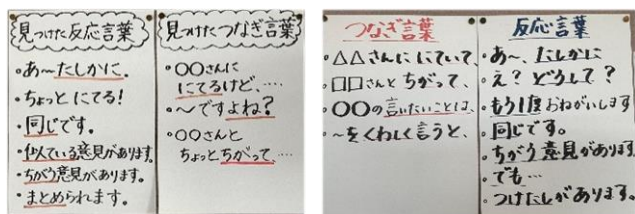 見つけた反応言葉
・あ～たしかに。
・ちょっとにてる!
・同じです。
・似ている意見があります。
・ちがう意見があります。
・まとめられます。
見つけたつなぎ言葉
・○○さんに
にてるけど、…
・～ですよね?
・○○さんと
ちょっとちがって、…
つなぎ言葉
・△△さんににていて、
・□□さんとちがって、
・○○の言いたいことは、
・～をくわしく言うと、
反応言葉
・あ～、たしかに
・え?どうして?
・もう1度おねがいします
・同じです。
・ちがう意見があります。
・でも…
・つけたしがあります。